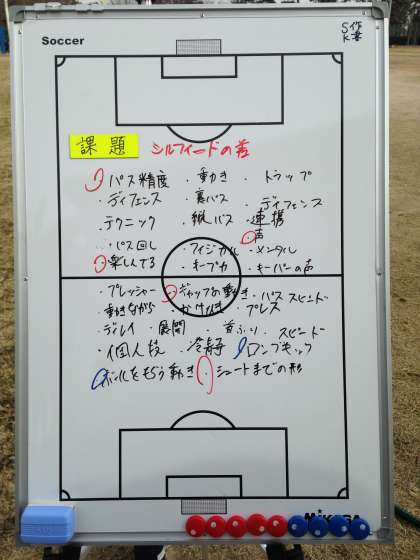 Soccer
S作
K書
課題 シルフィードの差
・パス精度 ・動き ・トラップ
・ディフェンス ・裏パス ・ディフェンス
・テクニック ・縦パス ・連携
・パス回し ・フィジカル ・声 ・メンタル
・楽しんでる ・キープ力 ・キーパーの声
・プレッシャー ・ギャップの動き ・パススピード
・動きながら ・かけひき ・プレス
・デレイ ・展開 ・首ふり ・スピード
・個人技 ・冷静 ・ロングキック
・ボールをもらう動き ・シュートまでの形
MIKASA